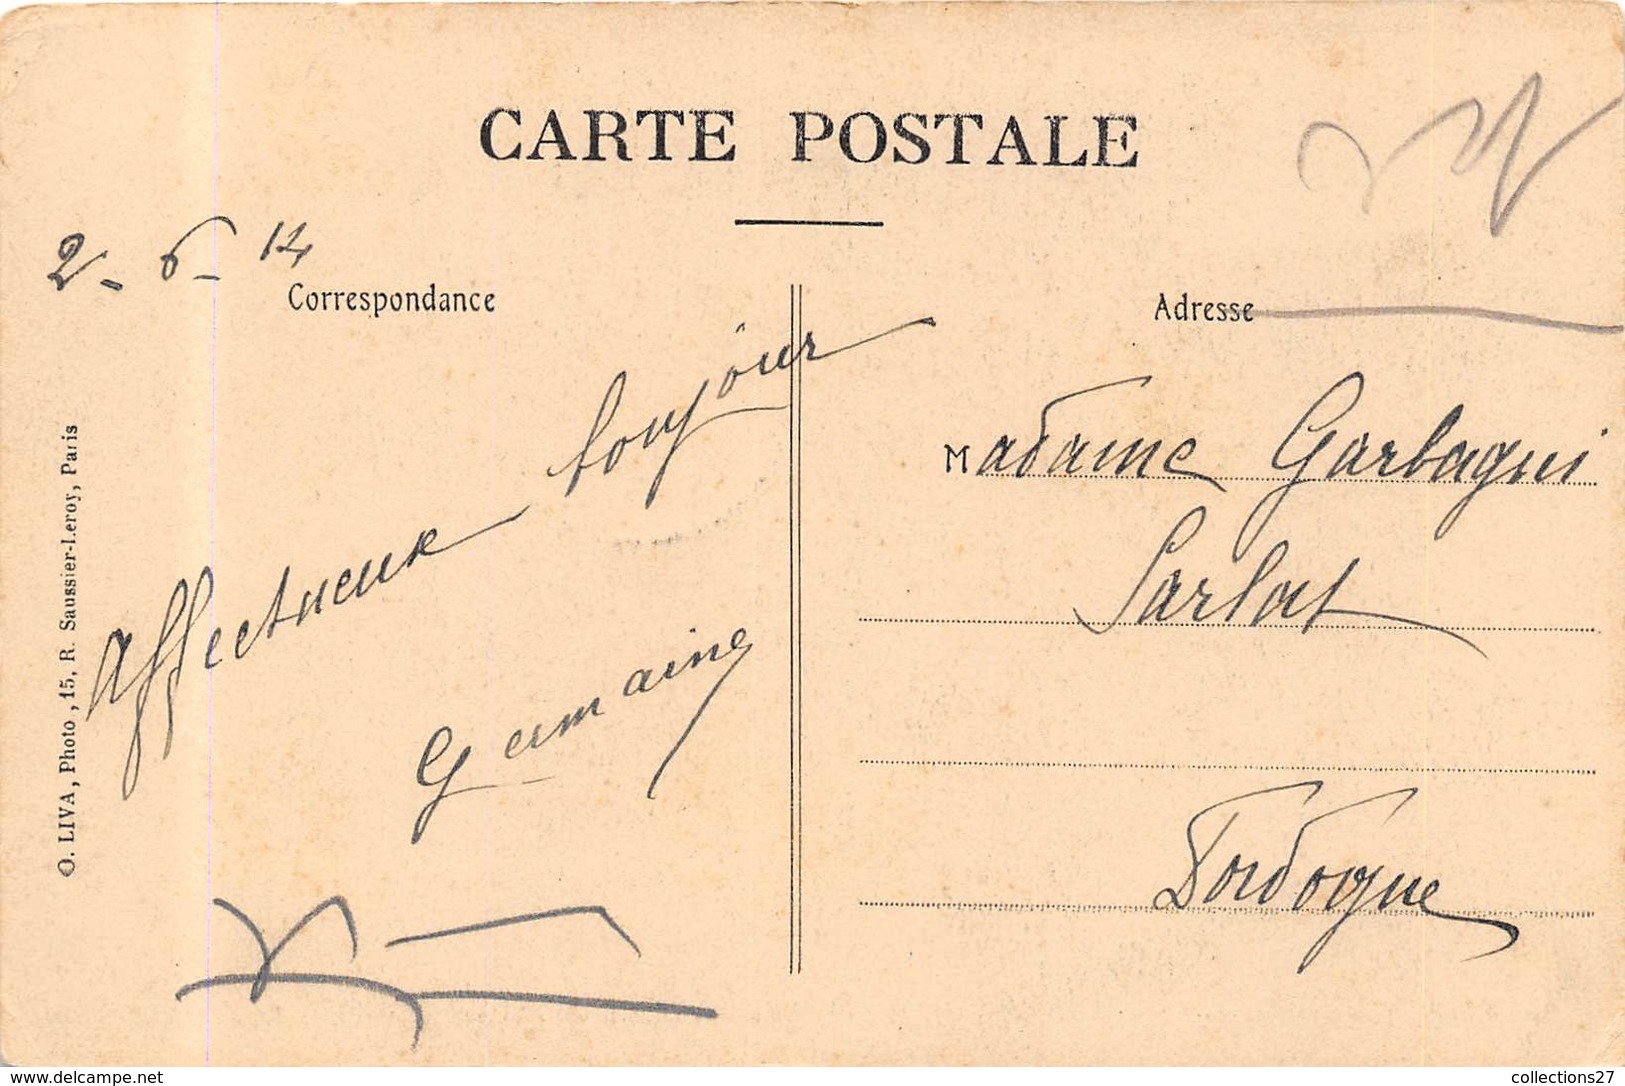 CARTE POSTALE
2-6-14
Correspondance
Affectueux bonjour
Germaine
O. LIVA, Photo, 15, R. Saussier-Leroy, Paris
Adresse
Madame Garbagni
Sarlat
Dordogne
delcampe.net
collections27